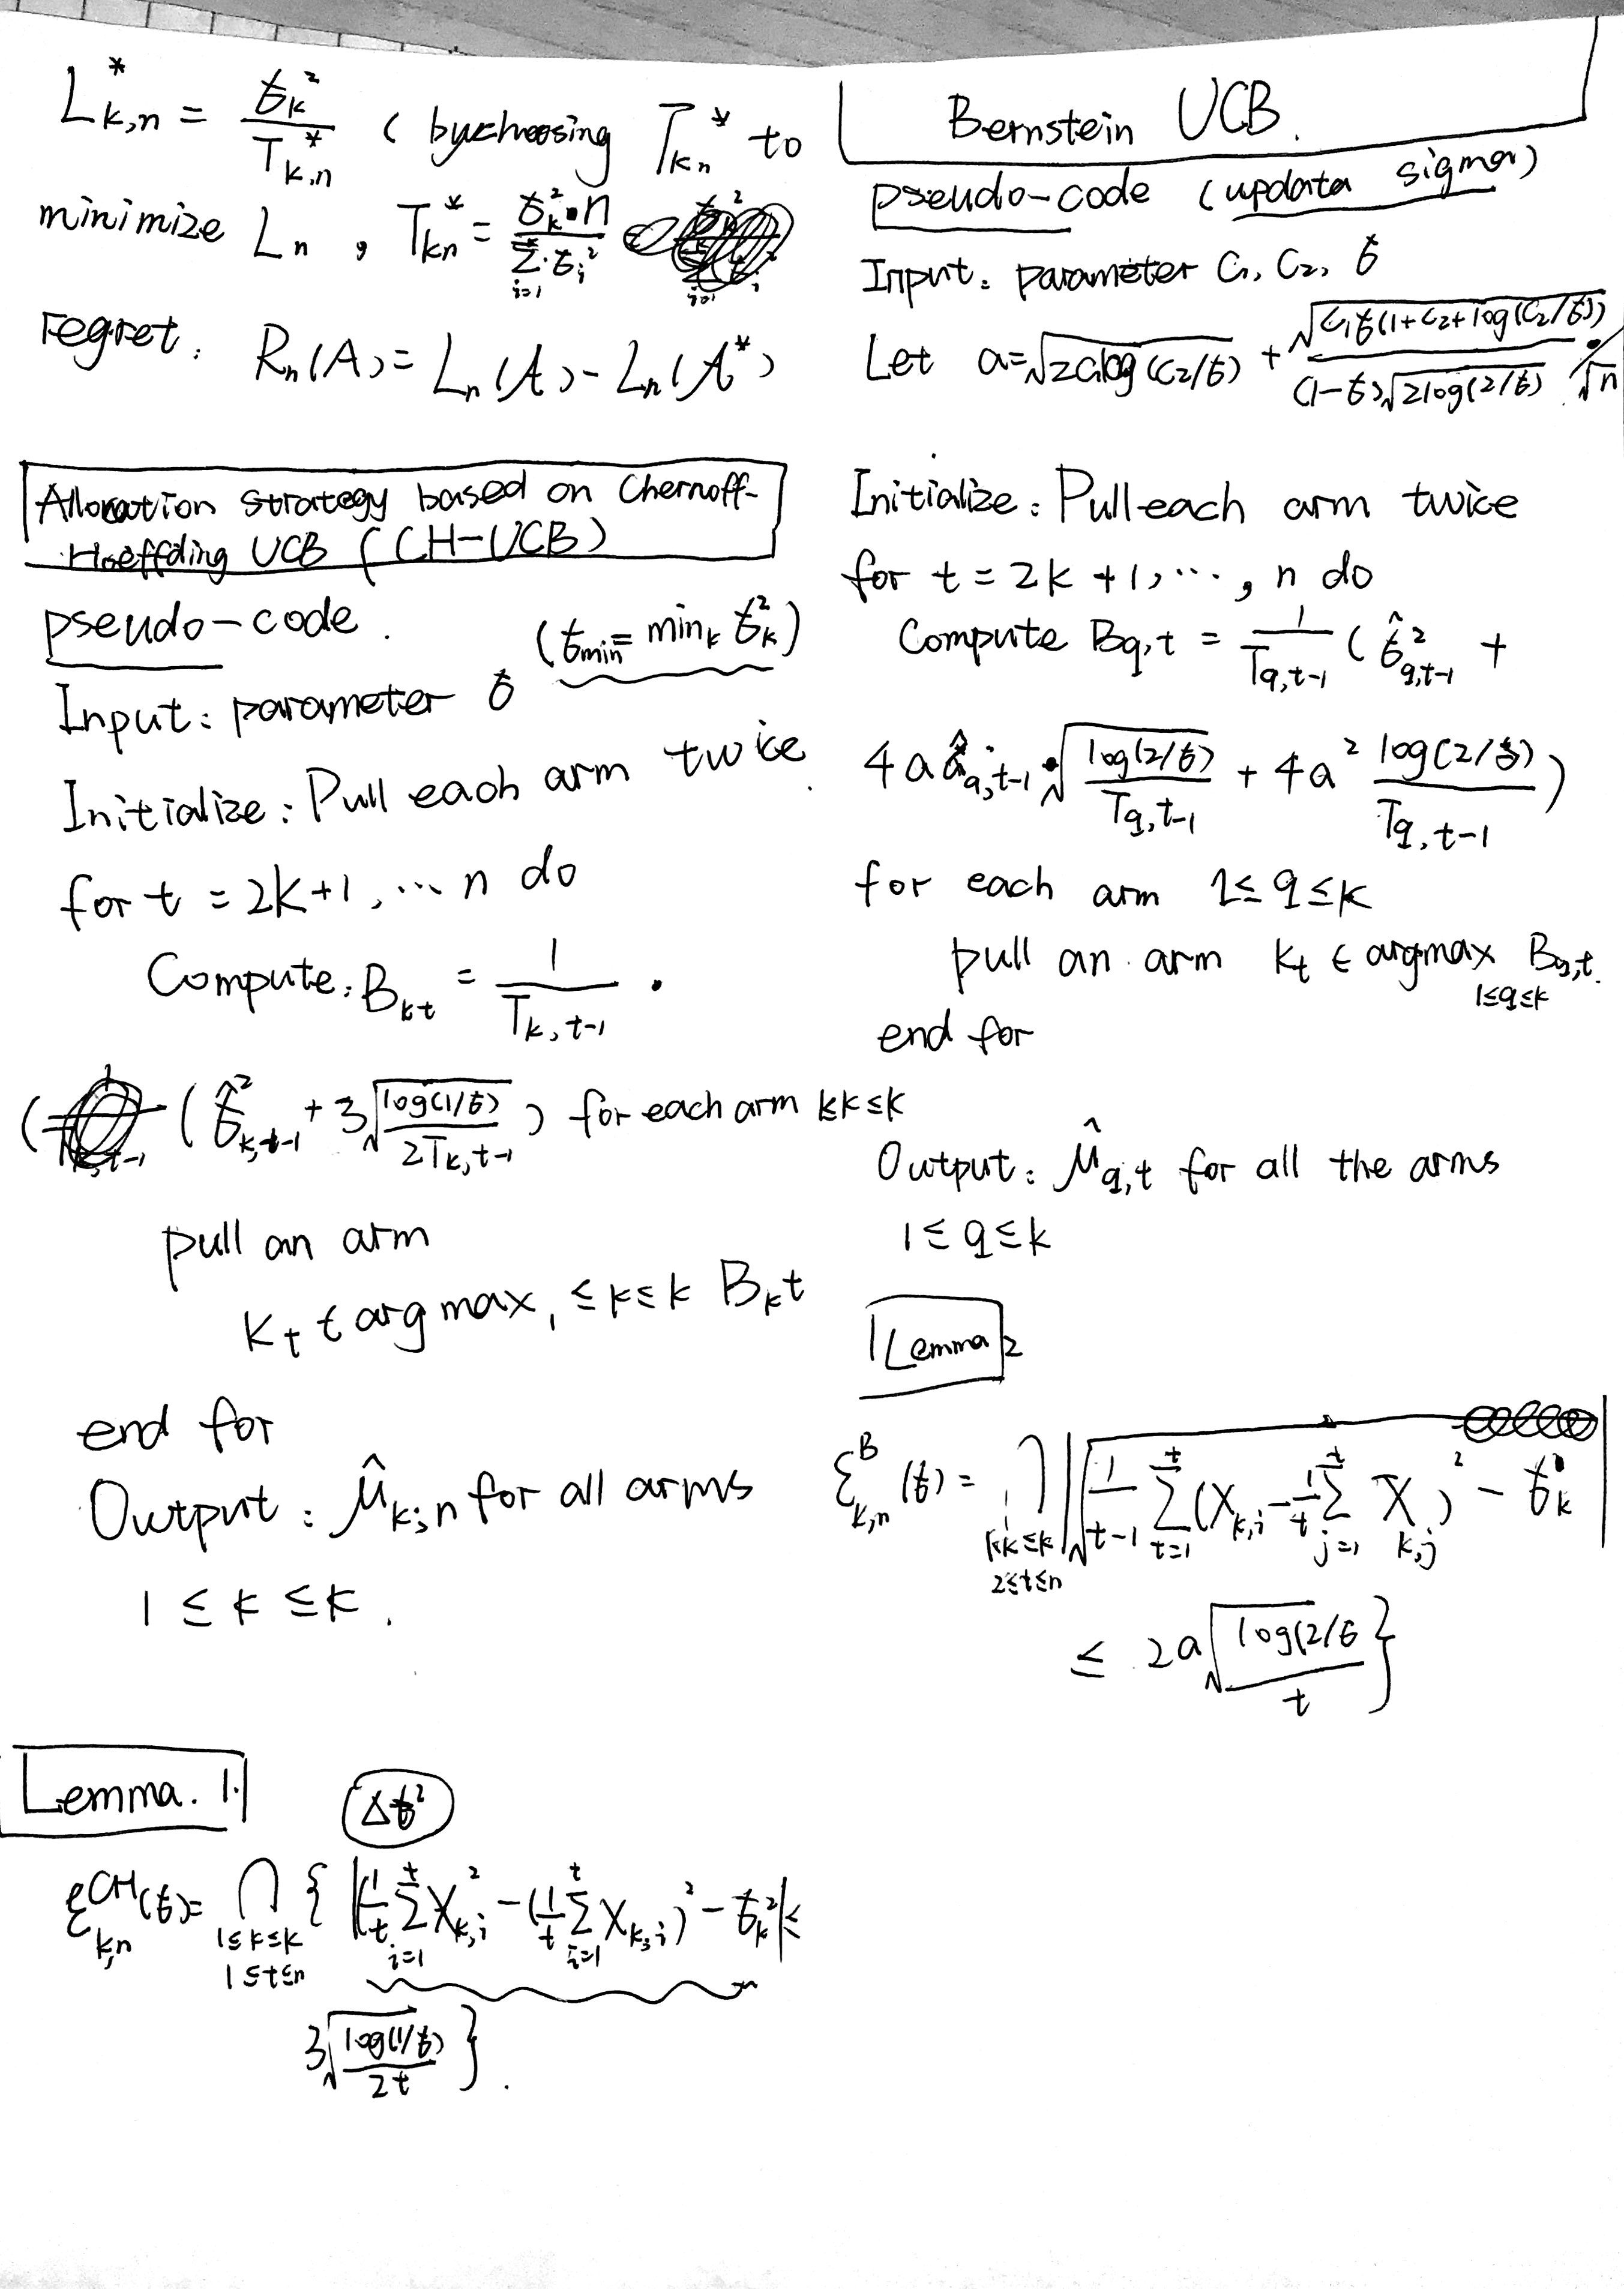 L*k,n = σk² / T*k,n ( by choosing T*kn to
minimize Ln , T*kn = σk² · n / Σi=1 σi²
regret: Rn(A) = Ln(A) - Ln(A*)
Allocation strategy based on Chernoff-
Hoeffding UCB ( CH-UCB )
pseudo-code. (σmin = mink σk²)
Input: parameter δ
Initialize: Pull each arm twice.
for t = 2K+1, ... n do
Compute: Bkt = 1 / Tk,t-1 ·
( σ̂²k,t-1 + 3√(log(1/δ) / 2Tk,t-1) ) for each arm 1≤k≤K
pull an arm
Kt ∈ argmax1≤k≤K Bkt
end for
Output: μ̂k,n for all arms
1 ≤ k ≤ K.
Lemma. 1.
Δσ²
ξCHk,n(δ) = ⋂ 1≤k≤K 1≤t≤n { |(1/t Σti=1 X²k,i - (1/t Σti=1 Xk,i)² - σk²| ≤
3√(log(1/δ) / 2t) }.
Bernstein UCB.
pseudo-code (updata sigma)
Input: parameter C1, C2, δ
Let a = √(2C1log(C2/δ)) + √(C1δ(1+C2+log(C2/δ))) / (1-δ)√(2log(2/δ)) · /√n
Initialize: Pull each arm twice
for t = 2K+1, ..., n do
Compute Bq,t = 1 / Tq,t-1 ( σ̂²q,t-1 +
4a σ̂q,t-1 · √(log(2/δ) / Tq,t-1) + 4a² log(2/δ) / Tq,t-1 )
for each arm 1≤q≤K
pull an arm Kt ∈ argmax1≤q≤K Bq,t.
end for
Output: μ̂q,t for all the arms
1 ≤ q ≤ K
Lemma 2
ξBk,n(δ) = ⋂ 1≤k≤K 2≤t≤n |√(1/t-1 Σtt=1 (Xk,i - 1/t Σtj=1 Xk,j)² - σk|
≤ 2a√(log(2/δ / t) }